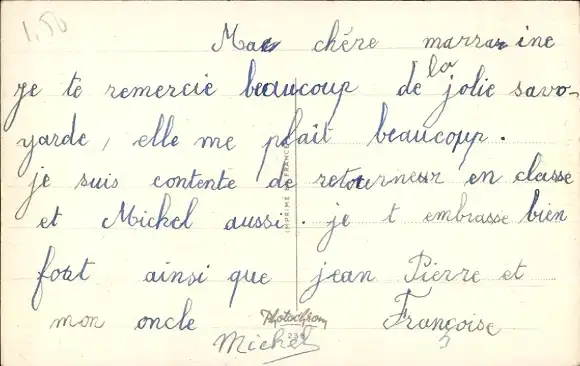 1,50
Ma chére marraine
je te remercie beaucoup de la jolie savo-
yarde, elle me plait beaucoup.
je suis contente de retourneur en classe
et Michel aussi. je t embrasse bien
fort ainsi que jean Pierre et
mon oncle Françoise
Michel
Photochrom
IMPRIMÉ EN FRANCE